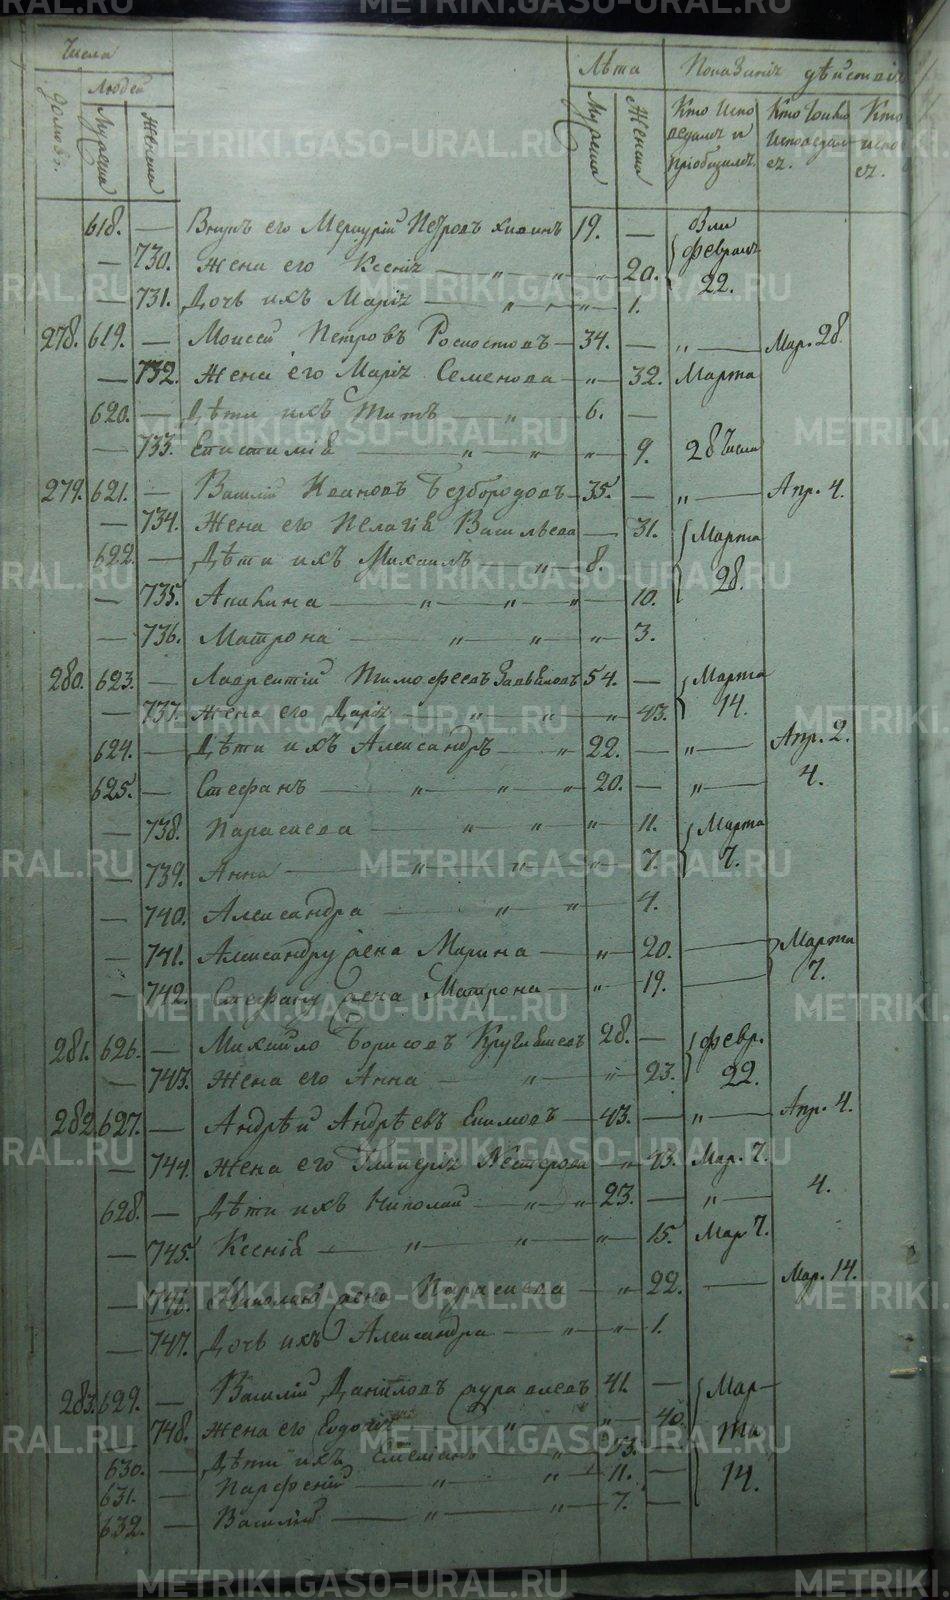 Числа
Людей
домовъ.
Мужеска
Женска
Лѣта
Мужеска
Женска
Показанiе дѣйствiя
Кто Испо
ведался и
прiобщился.
Кто токмо
Исповедал
ся.
Кто
испо
ся.
618. — Внукъ его Меркурiй Петровъ 19. — Феврал 22.
— 730. Жена его Ксенiя — „ — „ — „ 20.
— 731. Дочь ихъ Марiя — „ „ — „ 1.
278. 619. — Моисей Петровъ Роспостовъ — 34. — „ — Мар. 28
— 732. Жена его Марiя Семенова — „ — 32. Марта
620. — Дѣти ихъ Титъ — „ 6. —
— 733. Епистимiя — „ — „ — „ 9. 28 Числа
279. 621. — Василiй Ивановъ Безбородовъ — 35. — „ — Апр. 4.
— 734. Жена его Пелагiя Васильева — 31. Марта
622. — Дѣти ихъ Михаилъ — „ — 8. 28.
— 735. Акилина — „ — „ — „ 10.
— 736. Матрона — „ — „ — „ 3.
280. 623. — Лаврентiй Тимофеевъ 54. — Марта
— 737. Жена его Дарiя — „ — „ — „ 43. 14.
624. — Дѣти ихъ Александръ — „ 22. — „ — Апр. 2.
625. — Стефанъ — „ — „ — „ 20. — „ — 4.
— 738. Параскева — „ — „ — „ 11. Марта
— 739. Анна — „ — „ — „ 7. 7.
— 740. Александра — „ — „ — 4.
— 741. Александру жена Марина — „ — 20. — Марта
— 742. Стефану жена Матрона — „ — 19. — 7.
281. 626. — Михайло Борисовъ 28. — Февр.
— 743. Жена его Анна — „ — „ 23. 22.
282. 627. — Андрѣй Андрѣевъ Екимовъ — 43. — „ — Апр. 4.
— 744. Жена его Гликерiя Нестерова — „ 43. Мар. 7.
628. — Дѣти ихъ Николай — „ — „ 23. — „ — 4.
— 745. Ксенiя — „ — „ — „ 15. Мар 7.
— 746. Николаю жена Параскева — „ 22. — Мар. 14.
— 747. Дочь ихъ Александра — „ — „ 1.
283. 629. — Василiй Даниловъ Журавлевъ 41. — Мар-
— 748. Жена его Евдокiя — „ — „ 40. та
630. — Дѣти ихъ Емелiянъ — „ — 13. —
631. — Парфенiй — „ — „ 11. — 14.
632. — Василiй — „ — „ — 7. —
METRIKI.GASO-URAL.RU